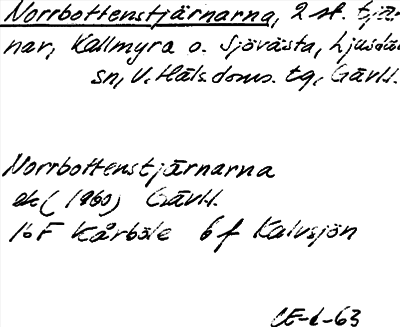 Norrbottenstjärnarna, 2 st. tjär-
nar, Kallmyra o. Sjövästa, Ljusdals
sn, V. Häls. doms. tg, Gävl.
Norrbottenstjärnarna
ek (1960) Gävl.
16 F Kårböle 6 f Kalvsjön
CE-L-63